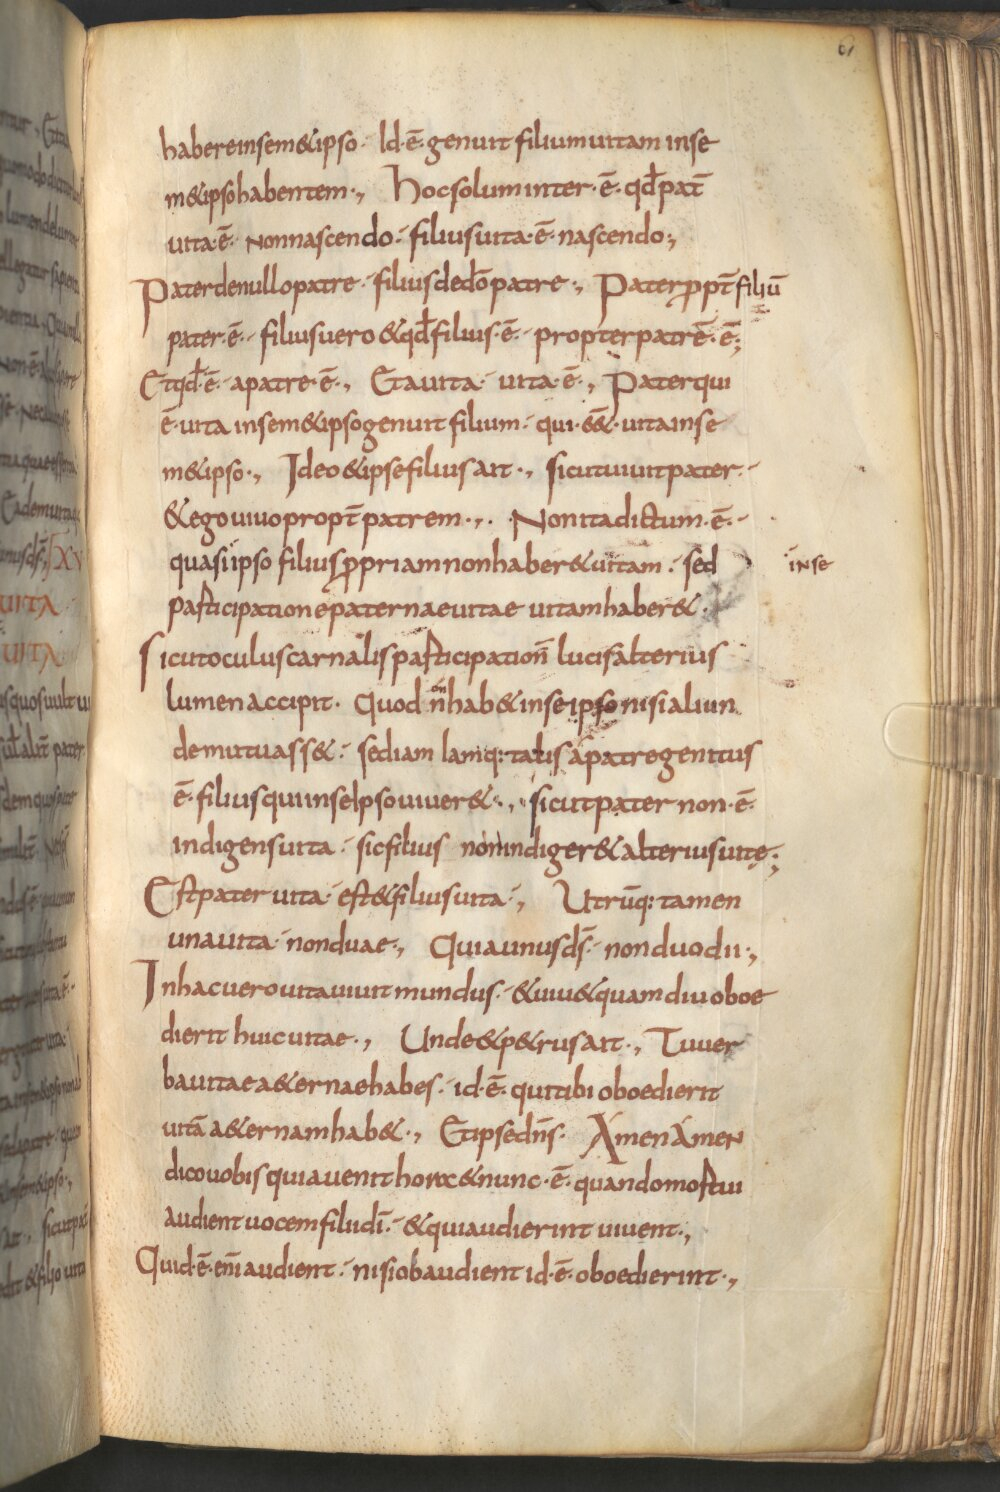 61
habere in sem&ipso· Id·ē·genuit filium uitam in se
m&ipso habentem·, Hoc solum inter·ē·qđ pat̄
uita·ē· non nascendo· filius uita·ē·nascendo;
Pater de nullo patre· filius de dō patre·, Pater ꝓpt̄ filiū
pater·ē· filius uero & qđ filius·ē· propter patrē·ē;
Et qđ·ē· a patre·ē·, Et a uita· uita·ē·, Pater qui
ē·uita in sem&ipso genuit filium· qui·eē&·uita in se
m&ipso·, Ideo & ipse filius ait·, sicut uiuit pater·
& ego uiuo propt̄ patrem·,· Non ita dictum·ē·
quasi ipso filius ꝓpriam non haber& uitam· sed
in se
participatione paternae uitae uitam haber&·
Sicut oculus carnalis participation̄ lucis alterius
lumen accipit· Quod n̄ hab& in se ipso nisi aliun
de mutuass&· sed iam lamq: talis a patre genitus
ē·filius qui in se ipso uiuer&·, sicut pater non·ē·
indigens uita· sic filius non indiger& alterius uitę;
Est pater uita· est & filius uita·, Utrūq: tamen
una uita· non duae·, Quia unus ds̄· non duo dii·,
In hac uero uita uiuit mundus· & uiu& quam diu oboe
dierit huic uitae·, Unde & p&rus ait·, Tu uer
ba uitae a&ernae habes· id·ē·qui tibi oboedierit
uitā a&ernam hab&·, Et ipse dn̄s· Amen Amen
dico uobis quia uenit hora & nunc·ē·quando mortui
audient uocem filii dī·& qui audierint uiuent·,
Quid·ē·enī audient· nisi obaudient id·ē·oboedierint·,